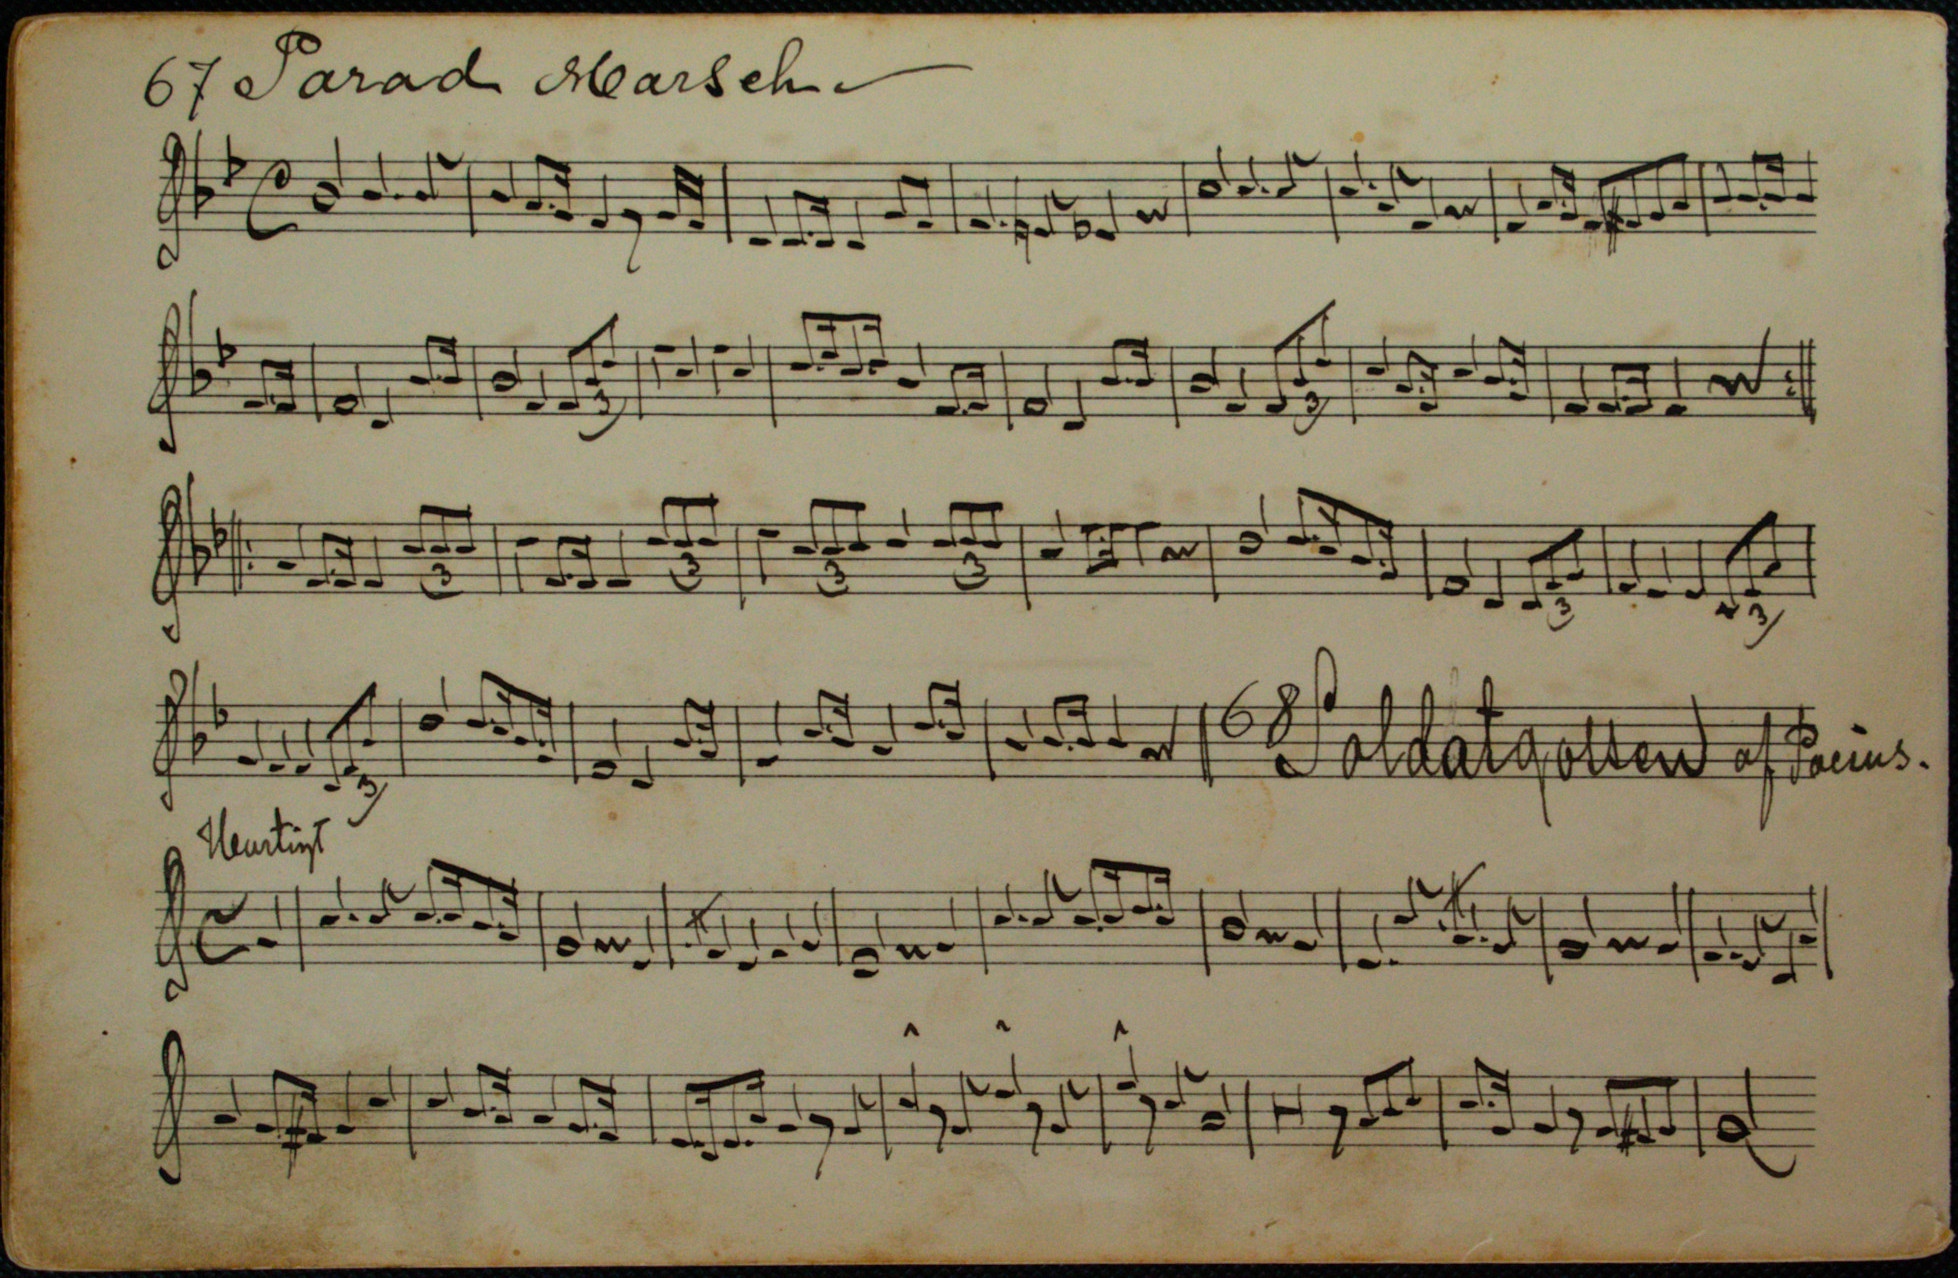 67 Parad Marsch
3 3
3 3 3 3 3 3
3
68 Soldatgossen af Pacius.
Hurtigt